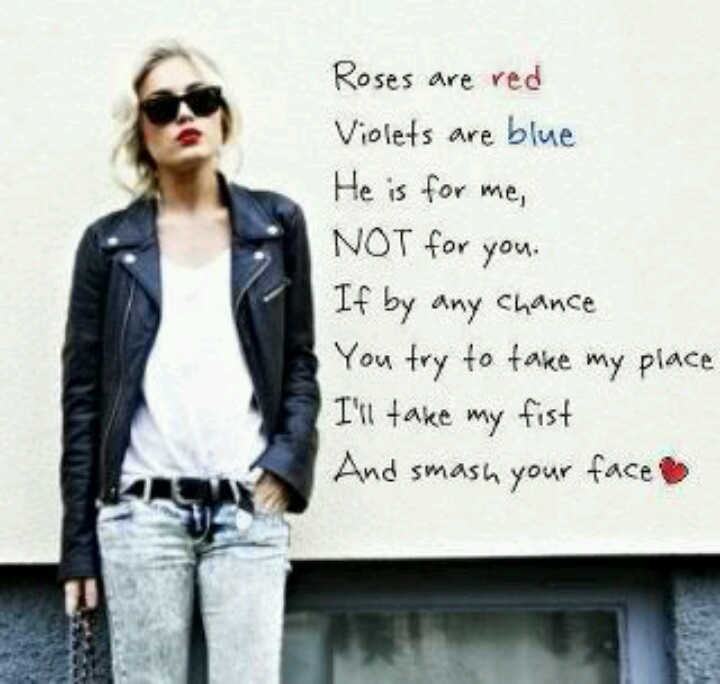 Roses are red
Violets are blue
He is for me,
NOT for you.
If by any chance
You try to take my place
I'll take my fist
And smash your face